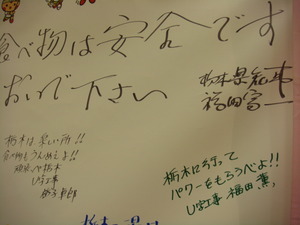 食べ物は安全です
おいで下さい
栃木県知事
福田富一
栃木は良い所!!
食べ物もうんめえよ!!
頑張っぺ栃木
U字工事
栃木に行って
パワーをもらうべよ!!
U字工事 福田薫